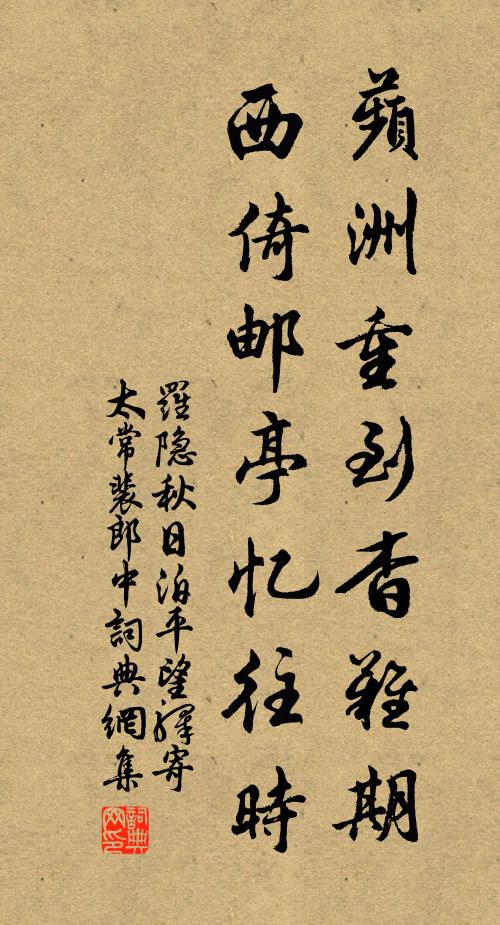 蘋洲重到杳難期
西倚邮亭忆往時
羅隐秋日泊平望驛寄
太常裴郎中詞典網集
詞典
网印